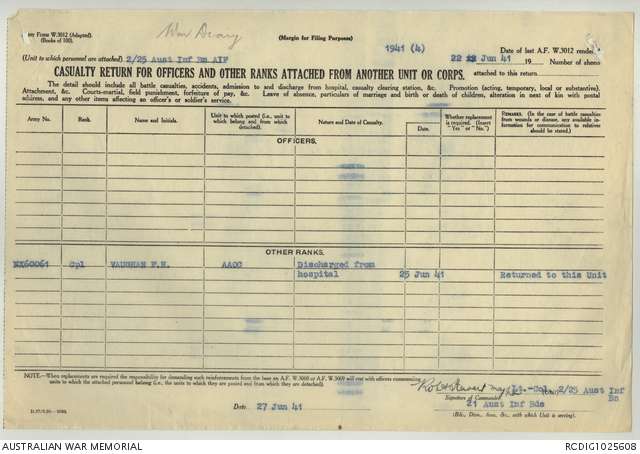 Army Form W.3012 (Adapted).
(Books of 100).
War Diary
(Margin for Filing Purposes)
1941 (4)
Date of last A.F. W.3012 rendered
22 Jun 41
19
Number of sheets
(Unit to which personnel are attached) 2/25 Aust Inf Bn AIF
CASUALTY RETURN FOR OFFICERS AND OTHER RANKS ATTACHED FROM ANOTHER UNIT OR CORPS.
attached to this return
The detail should include all battle casualties, accidents, admission to and discharge from hospital, casualty clearing station, &c. Promotion (acting, temporary, local or substantive).
Attachment, &c. Courts-martial, field punishment, forfeiture of pay, &c. Leave of absence, particulars of marriage and birth or death of children, alteration in next of kin with postal
address, and any other items affecting an officer's or soldier's service.
Army No.
Rank.
Name and Initials.
Unit to which posted (i.e., unit to which belong and from which detached).
Nature and Date of Casualty.
Date.
Whether replacement is required. (Insert "Yes" or "No.")
REMARKS. (In the case of battle casualties from wounds or disease, any available information for communication to relatives should be stated.)
OFFICERS.
OTHER RANKS
NX60061 Cpl VAUGHAN F.H. AAOC Discharged from
hospital 23 Jun 41 Returned to this Unit
NOTE—When replacements are required the responsibility for demanding such reinforcements from the base on A.F. W.3008 or A.F. W.3009 will rest with officers commanding
units to which the attached personnel belong (i.e. the units to which they are posted and from which they are detached).
Lt.-Col. 2/25 Aust Inf
Bn
Signature of Commander
21 Aust Inf Bde
Date 27 Jun 41
(Bde., Divn., Area, &c., with which Unit is serving).
AUSTRALIAN WAR MEMORIAL
RCDIG1025608